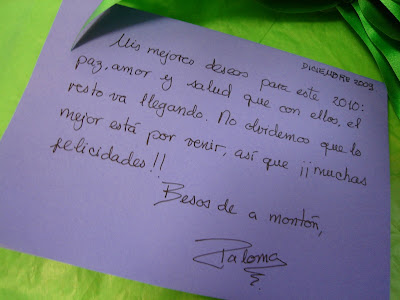 DICIEMBRE 2009
Mis mejores deseos para este 2010:
paz, amor y salud que con ellos, el
resto va llegando. No olvidemos que lo
mejor está por venir, así que ¡¡muchas
felicidades!!
Besos de a montón,
Paloma